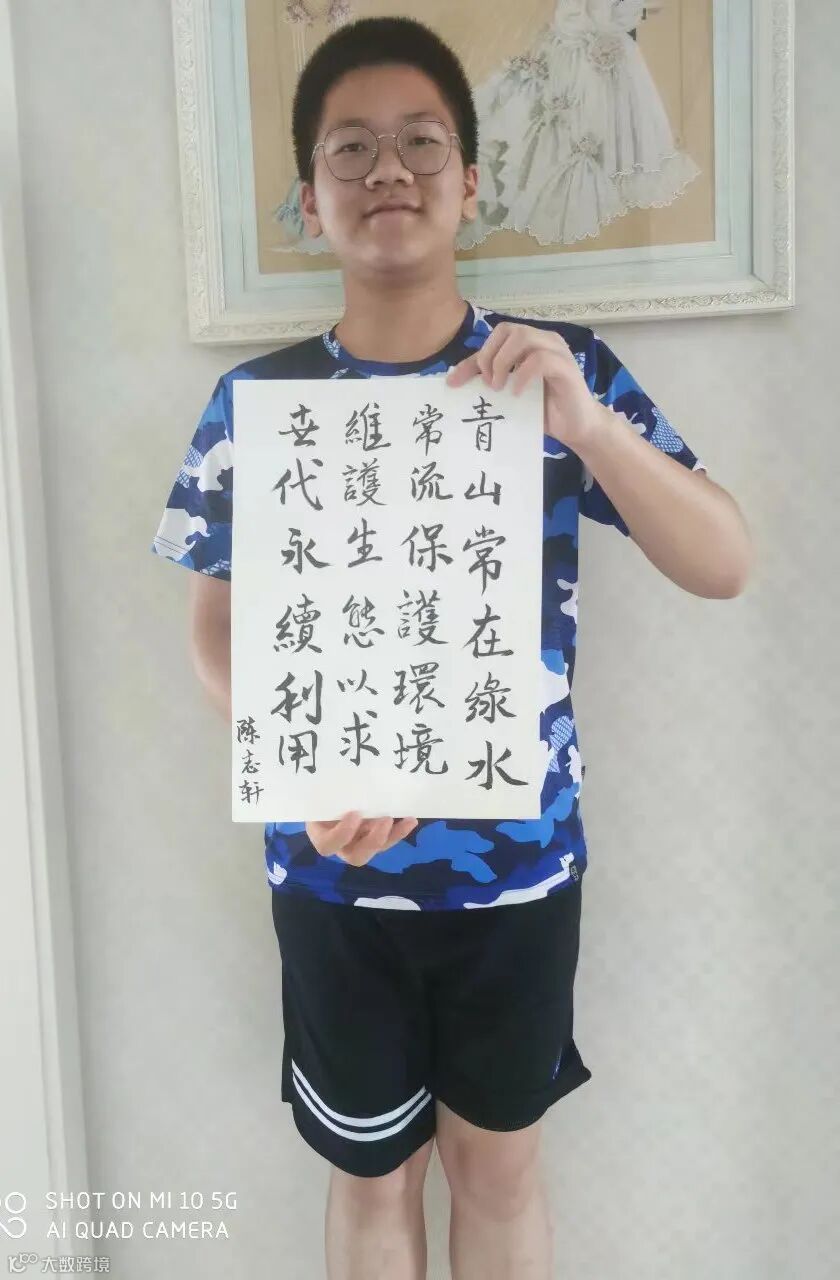 青山常在綠水
常流保護環境
維護生態以求
世代永續利用
陈志轩
SHOT ON MI 10 5G
AI QUAD CAMERA
大数跨境